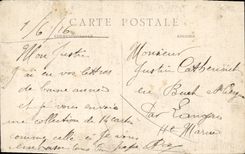 CARTE POSTALE
1/6/16
Mon Justin
J'ai eu vos lettres
de bonne année
et je vous envoie
une collection de 14 cartes
comme celle ci Je vous
embrasse tous Ton papa
Monsieur
Justin
en
par Langres
Hte Marne